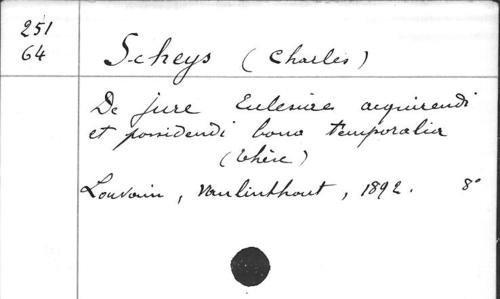 251
64
Scheys (Charles)
De jure Ecclesiae acquirendi
et possidendi bona temporalia
(thèse)
Louvain, Vanlinthout, 1892. 8°